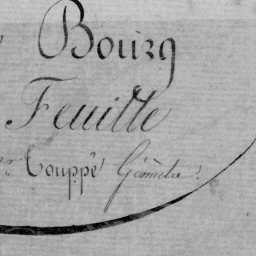 Bourg
Feuille
Couppé Géomètre